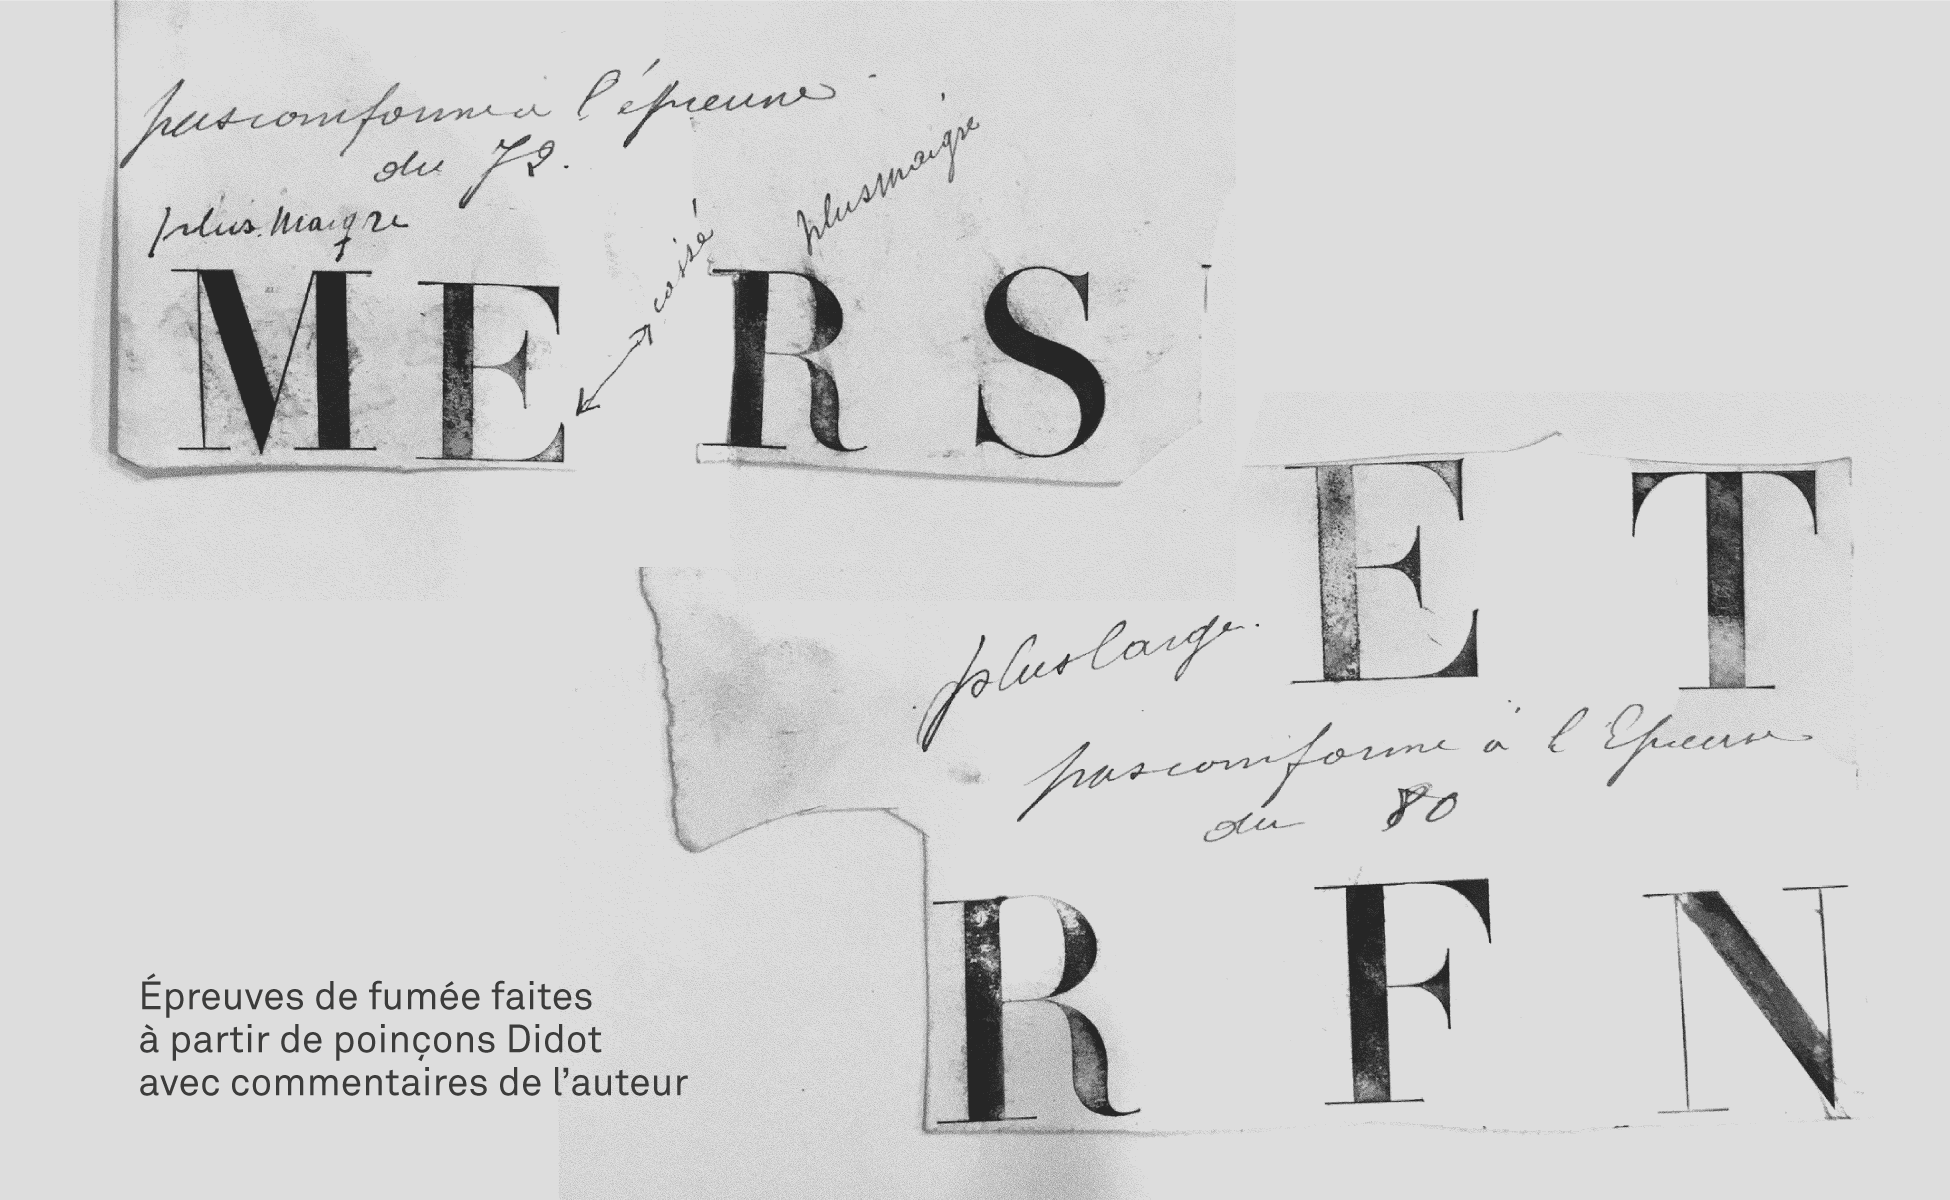 pas conforme a l'épreuve
du 72.
plus maigre
cassé
plus maigre
M E R S
E T
plus large.
pas conforme à l'Epreuve
du 80
R F N
Épreuves de fumée faites
à partir de poinçons Didot
avec commentaires de l'auteur